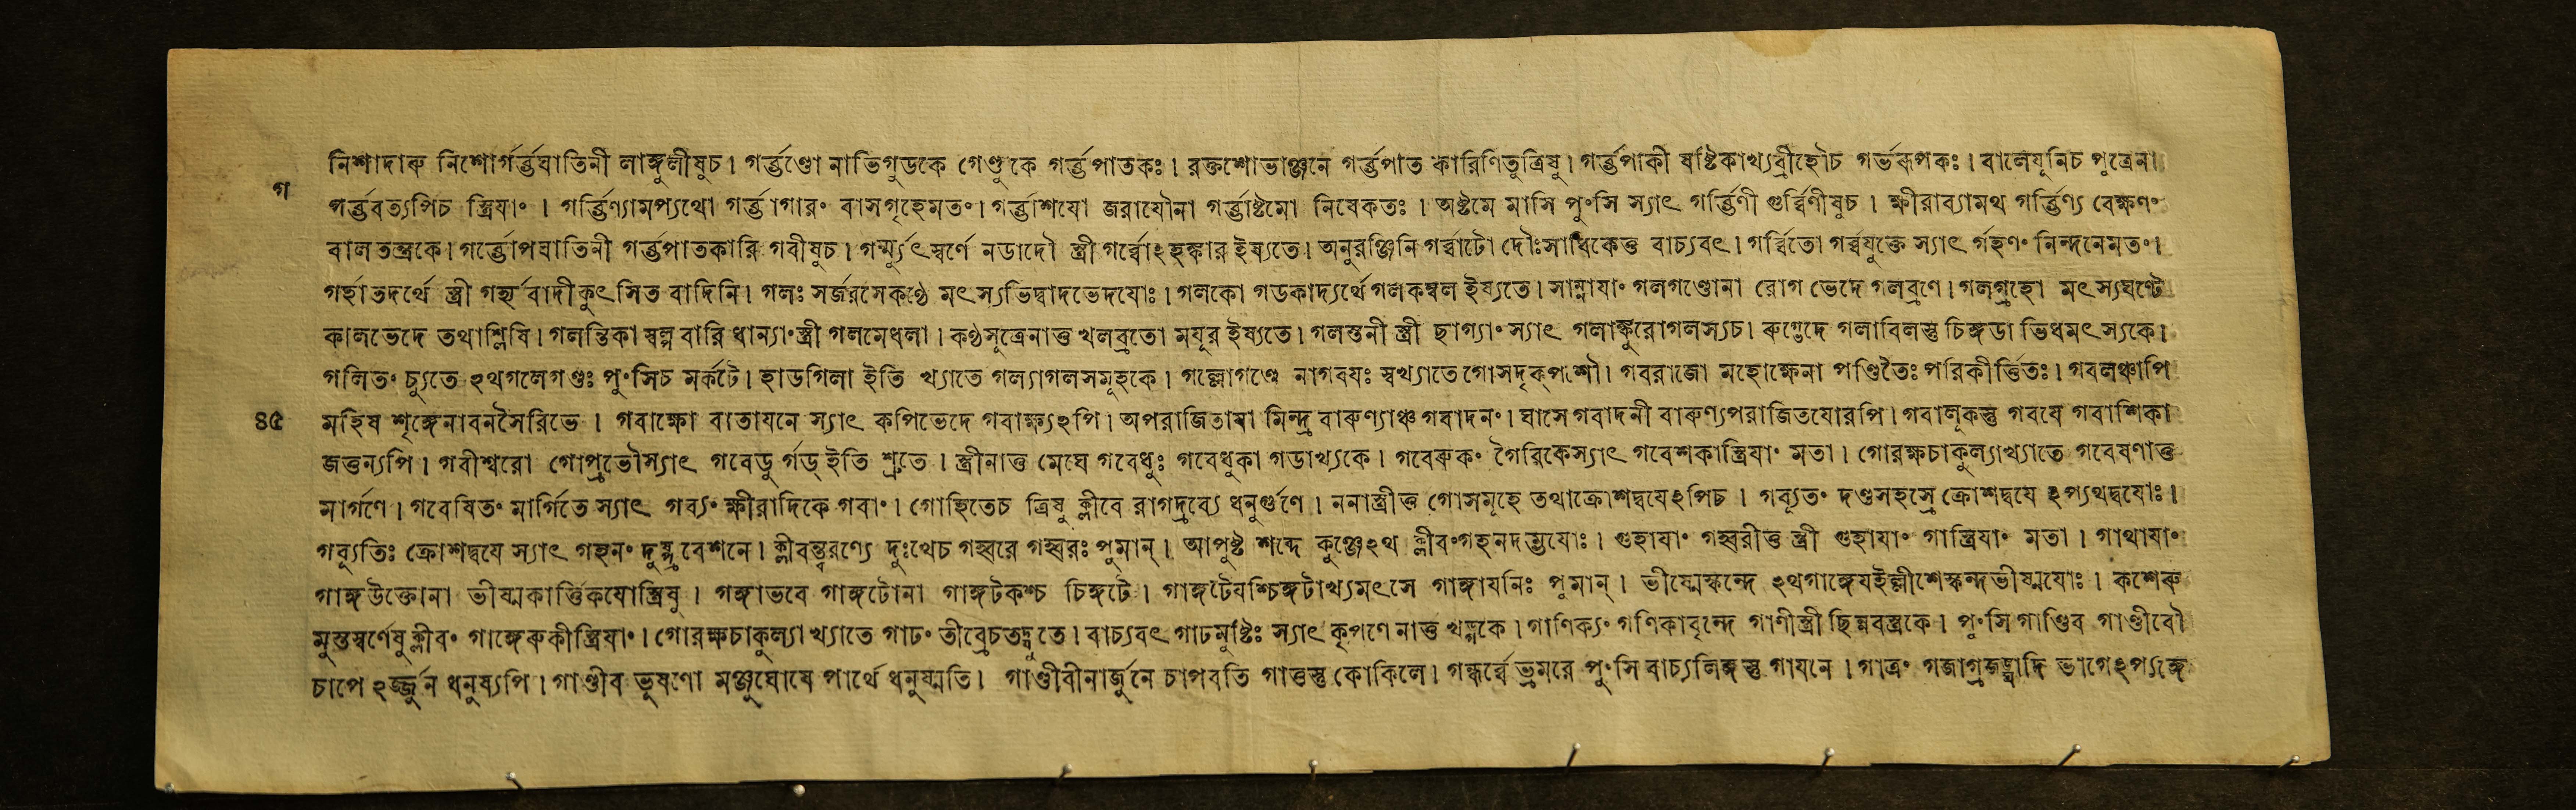 নিশাদারু নিশোর্গর্ব্ভঘাতিনী লাঙ্গুলীষুচ। গর্ব্ভণ্ডো নাভিগুডকে গেণ্ডুকে গর্ব্ভপাতকঃ। রক্তশোভাঞ্জনে গর্ব্ভপাত কারিণিতুত্রিষু। গর্ব্ভপাকী ষষ্টিকাখ্যব্রীহৌচ গর্ভরূপকঃ। বালেযূনিচ পুত্রেনা
গ
গর্ব্ভবত্যপিচ স্ত্রিযাং । গর্ব্ভিণ্যামপ্যথো গর্ব্ভাগারং বাসগৃহেমতং। গর্ব্ভাশযো জরাযৌনা গর্ব্ভাষ্টমো নিষেকতঃ । অষ্টমে মাসি পুংসি স্যাৎ গর্ব্ভিণী গুর্ব্বিণীষুচ । ক্ষীরাব্যামথ গর্ব্ভিণ্য বেক্ষণং
বাল তন্ত্রকে। গর্ব্ভোপঘাতিনী গর্ব্ভপাতকারি গবীষুচ। স্বর্ণে নডাদৌ স্ত্রী গর্ব্বোঽহঙ্কার ইষ্যতে। অনুরঞ্জিনি গর্ব্বাটো দৌঃসাধিকেত্ত বাচ্যবৎ। গর্ব্বিতো গর্ব্বযুক্তে স্যাৎ র্গহণং নিন্দনেমতং।
গর্হাতদর্থে স্ত্রী গর্হ্যবাদীকুৎসিত বাদিনি। গলঃ সর্জরসেকণ্ঠে মৎস্যভিদ্বাদভেদযোঃ। গলকো গডকাদ্যর্থেগলকম্বল ইষ্যতে। সাস্নাযাং গলগণ্ডোনা রোগ ভেদে গলব্রণে। গলগ্রহো মৎস্যঘণ্টে
কালভেদে তথাশ্লিষি। গলন্তিকা স্বল্প বারি ধান্যাংস্ত্রী গলমেধলা। কণ্ঠসূত্রেনাত্ত খলব্রতো মযূর ইষ্যতে। গলস্তনী স্ত্রী ছাগ্যাং স্যাৎ গলাঙ্কুরোগলস্যচ। রুগ্ভেদে গলাবিলস্তু চিঙ্গডা ভিধমৎস্যকে।
গলিতং চ্যুতে ঽথগলেগণ্ডঃ পুংসিচ মর্কটে। হাডগিলা ইতি খ্যাতে গল্যাগলসমূহকে। গল্লোগণ্ডে নাগবযঃ স্বখ্যাতে গোসদৃক্পশৌ। গবরাজো মহোক্ষেনা পণ্ডিতৈঃ পরিকীর্ত্তিতঃ। গবলঞ্চাপি
৪৫ মহিষ শৃঙ্গেনাবনসৈরিভে । গবাক্ষো বাতাযনে স্যাৎ কপিভেদে গবাক্ষ্যঽপি। অপরাজিতাযা মিন্দ্র বারুণ্যাঞ্চ গবাদনং। ঘাসে গবাদনী বারুণ্যপরাজিতযোরপি। গবালূকস্তু গবযে গবাশিকা
জত্তন্যপি। গবীশ্বরো গোপ্রভৌস্যাৎ গবেডু র্গড্ ইতি শ্রুতে । স্ত্রীনাত্ত মেঘে গবেধুঃ গবেধুকা গডাখ্যকে। গবেরুকং গৈরিকেস্যাৎ গবেশকাস্ত্রিযাং মতা। গোরক্ষচাকুল্যাখ্যাতে গবেষণাত্ত
মার্গণে। গবেষিতং মার্গিতে স্যাৎ গব্যং ক্ষীরাদিকে গবাং। গোহিতেচ ত্রিষু ক্লীবে রাগদ্রব্যে ধনুর্গুণে । ননাস্ত্রীত্ত গোসমূহে তথাক্রোশদ্বযেঽপিচ । গব্যূতং দণ্ডসহস্রে ক্রোশদ্বযে ঽপ্যথদ্বযোঃ।
গব্যূতিঃ ক্রোশদ্বযে স্যাৎ গহনং দুষ্প্রবেশনে। ক্লীবন্ত্বরণ্যে দুঃখেচ গহ্বরে গহ্বরঃ পুমান্। আপুষ্ট শব্দে কুঞ্জেঽথ ক্লীবংগহনদম্ভযোঃ। গুহাযাং গহ্বরীত্ত স্ত্রী গুহাযাং গাস্ত্রিযাং মতা । গাথাযাং
গাঙ্গউক্তোনা ভীষ্মকার্ত্তিকযোস্ত্রিষু । গঙ্গাভবে গাঙ্গটোনা গাঙ্গটকশ্চ চিঙ্গটে। গাঙ্গটেযশ্চিঙ্গটাখ্যমৎসে গাঙ্গাযনিঃ পুমান্। ভীষ্মেস্কন্দে ঽথগাঙ্গেযইল্লীশেস্কন্দভীষ্মযোঃ। কশেরু
মুস্তস্বর্ণেষুক্লীবং গাঙ্গেরুকীস্ত্রিযাং। গোরক্ষচাকুল্যা খ্যাতে গাঢং তীব্রেচতদ্বতে। বাচ্যবৎ গাঢমুষ্টিঃ স্যাৎ কৃপণে নাত্ত খড্গকে। গাণিক্যং গণিকাবৃন্দে গাণীস্ত্রী ছিন্নবস্ত্রকে। পুংসি গাণ্ডিব গাণ্ডীবৌ
চাপে ঽর্জ্জুন ধনুষ্যপি। গাণ্ডীব ভূষণো মঞ্জুঘোষে পার্থে ধনুষ্মতি। গাণ্ডীবীনার্জুনে চাপবতি গাত্তস্তু কোকিলে। গন্ধর্ব্বে ভ্রমরে পুংসি বাচ্যলিঙ্গস্তু গাযনে। গাত্রং গজাগ্রজঙ্ঘাদি ভাগেঽপ্যঙ্গে